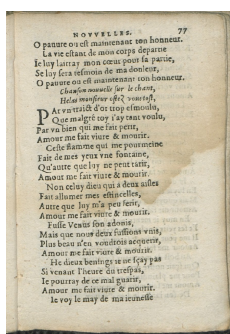 NOVVELLES. 77
O pauure ou est maintenant ton honneur.
La vie estant de mon corps departie
Ie luy lairray mon cœur pour sa partie,
Se luy sera tesmoin de ma douleur,
O pauure ou est maintenant ton honneur.
Chanson nouuelle sur le chant,
Helas monsieur
PAr vn traict d'or trop esmoulu,
Que malgré toy i'ay tant voulu,
Par vn bien qui me fait perir,
Amour me fait viure & mourir.
Ceste flamme qui me pourmeine
Fait de mes yeux vne fontaine,
Qu'autre que luy ne peut tarir,
Amour me fait viure & mourir.
Non celuy dieu qui a deux aisles
Fait allumer mes estincelles,
Autre que luy m'a peu ferir,
Amour me fait viure & mourir.
Fusse Venus son adonis,
Mais que nous deux fussions vnis,
Plus beau n'en voudrois acquerir,
Amour me fait viure & mourir.
He dieux benings ie ne sçay pas
Si venant l'heure du trespas,
Ie pourray de ce mal guarir,
Amour me fait viure & mourir.
Ie voy le may de ma ieunesse